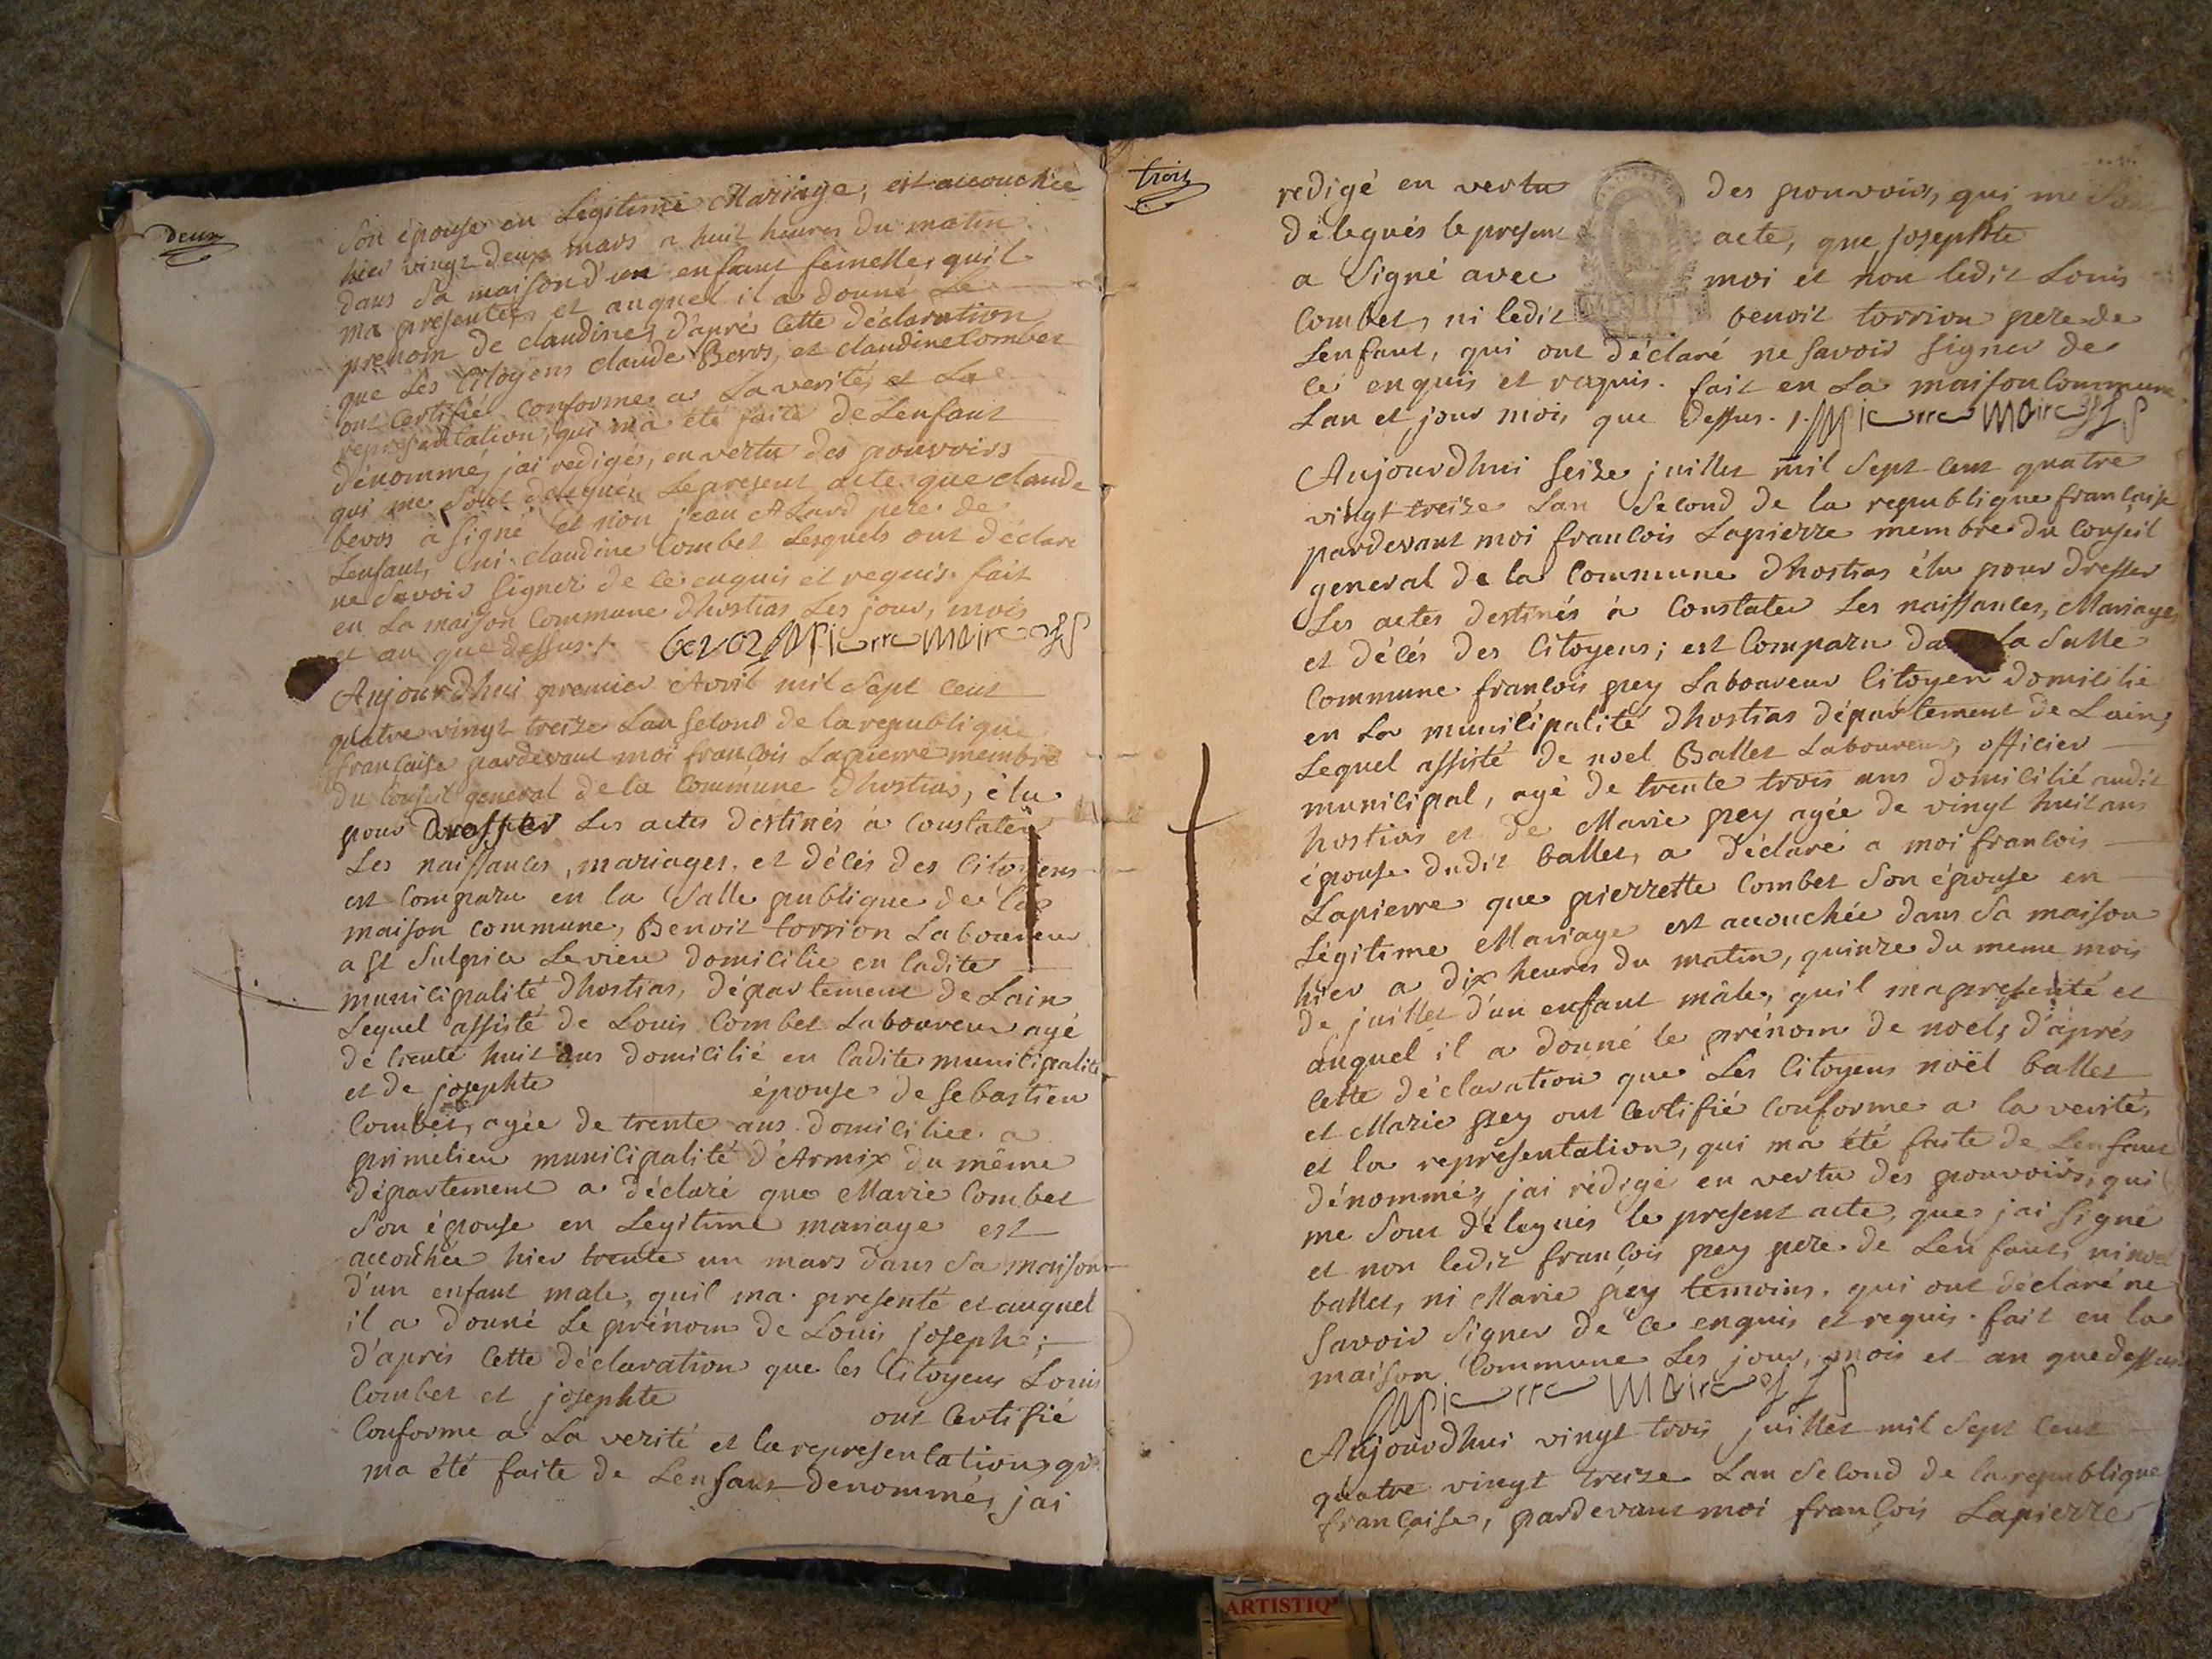 deux
Son épouse en Légitime Mariage, est accouchée
hier vingt deux mars a huit heures du matin
dans Sa maison d'un enfant femelle, quil
ma presentée, et auquel il a donné Le
prenom de claudine, d'apré Cette déclaration
que Les Citoyens claude Beros, et claudine Combet
ont Certifié Conforme a La verité, et La
representation, qui m'a été faite de Lenfant
dénommé, jai redigés, en vertu des pouvoirs
qui me Sont delegués Le present acte que claude
beros a Signé et non jean pere de
Lenfant, ni claudine Combet Lesquels ont déclaré
ne Savoir Signer de Ce enquis et requis. fait
en La maison Commune dhostias Les jour, mois
et an que dessus./. beros Lapierre Maire off
Aujourdhui premier Avril mil Sept Cent
quatre vingt treize Lan Second de la republique
française pardevant moi francois Lapierre membre
du Conseil general de la Commune dhostias, élu
pour Dresser Les actes destinés à Constater
Les naissances, mariages, et décés des Citoyens
est Comparu en la Salle publique de la
maison Commune, Benoit torrion Laboureur
a St Sulpice Levieu domicilié en ladite
municipalité dhostias, département de Lain
Lequel assisté de Louis Combet Laboureur agé
de trente huit ans domicilié en ladite municipalité
et de josephte épouse de Sebastien
Combet, agée de trente ans domiciliée a
primelieu municipalité d'Armix du même
département a déclaré que Marie Combet
Son épouse en Legitime mariage est
accouhée hier trente un mars dans Sa maison
d'un enfant male, quil ma presenté et auquel
il a donné Le prénom de Louis joseph;
d'aprés Cette déclaration que les Citoyens Louis
Combet et josephte ont Certifié
Conforme a La verité et la representation, qui
ma été faite de Lenfant denommé, jai
trois
redigé en vertu des pouvoirs, qui me Sont
délegués le present acte, que josephte
a Signé avec moi et non ledit Louis
Combet, ni ledit benoit torrion pere de
Lenfant, qui ont déclaré ne Savoir Signer de
Ce enquis et requis. fait en La maison Commune
Lan et jour mois que Dessus. /. Lapierre Maire off
Aujourdhui Seize juillet mil Sept Cent quatre
vingt treize Lan Second de la republique française
pardevant moi francois Lapierre membre du Conseil
general de la Commune dhostias élu pour dresser
Les actes destinés à Constater Les naissances, Mariages
et décés des Citoyens; est Comparu da la Salle
Commune francois pey Laboureur Citoyen domicilié
en La municipalité dhostias département de Lain,
Lequel assisté de noel Ballet Laboureur, officier
municipal, agé de trente trois ans domicilié audit
hostias et de Marie pey agée de vingt huit ans
épouse dudit ballet, a déclaré a moi francois
Lapierre que pierrette Combet Son épouse en
Légitime Mariage est accouchée dans Sa maison
hier a dix heures du matin, quinze du meme mois
de juillet d'un enfant mâle, quil ma presenté et
auquel il a donné le prénom de noel, d'aprés
Cette déclaration que Les Citoyens noël ballet
et Marie pey ont Certifié Conforme a la verité,
et la représentation, qui ma été faite de Lenfant
dénommé, jai rédigé en vertu des pouvoirs, qui
me Sont délegués le present acte, que jai Signé
et non ledit francois pey pere de Lenfant, ni noel
ballet, ni Marie pey temoins, qui ont déclaré ne
Savoir Signer de Ce enquis et requis. fait en la
maison Commune Les jour, mois et an que dessus
Lapierre Maire off
Aujourdhui vingt trois juillet mil Sept Cent
quatre vingt treize Lan Second de la republique
française, pardevant moi francois Lapierre
ARTISTIQ